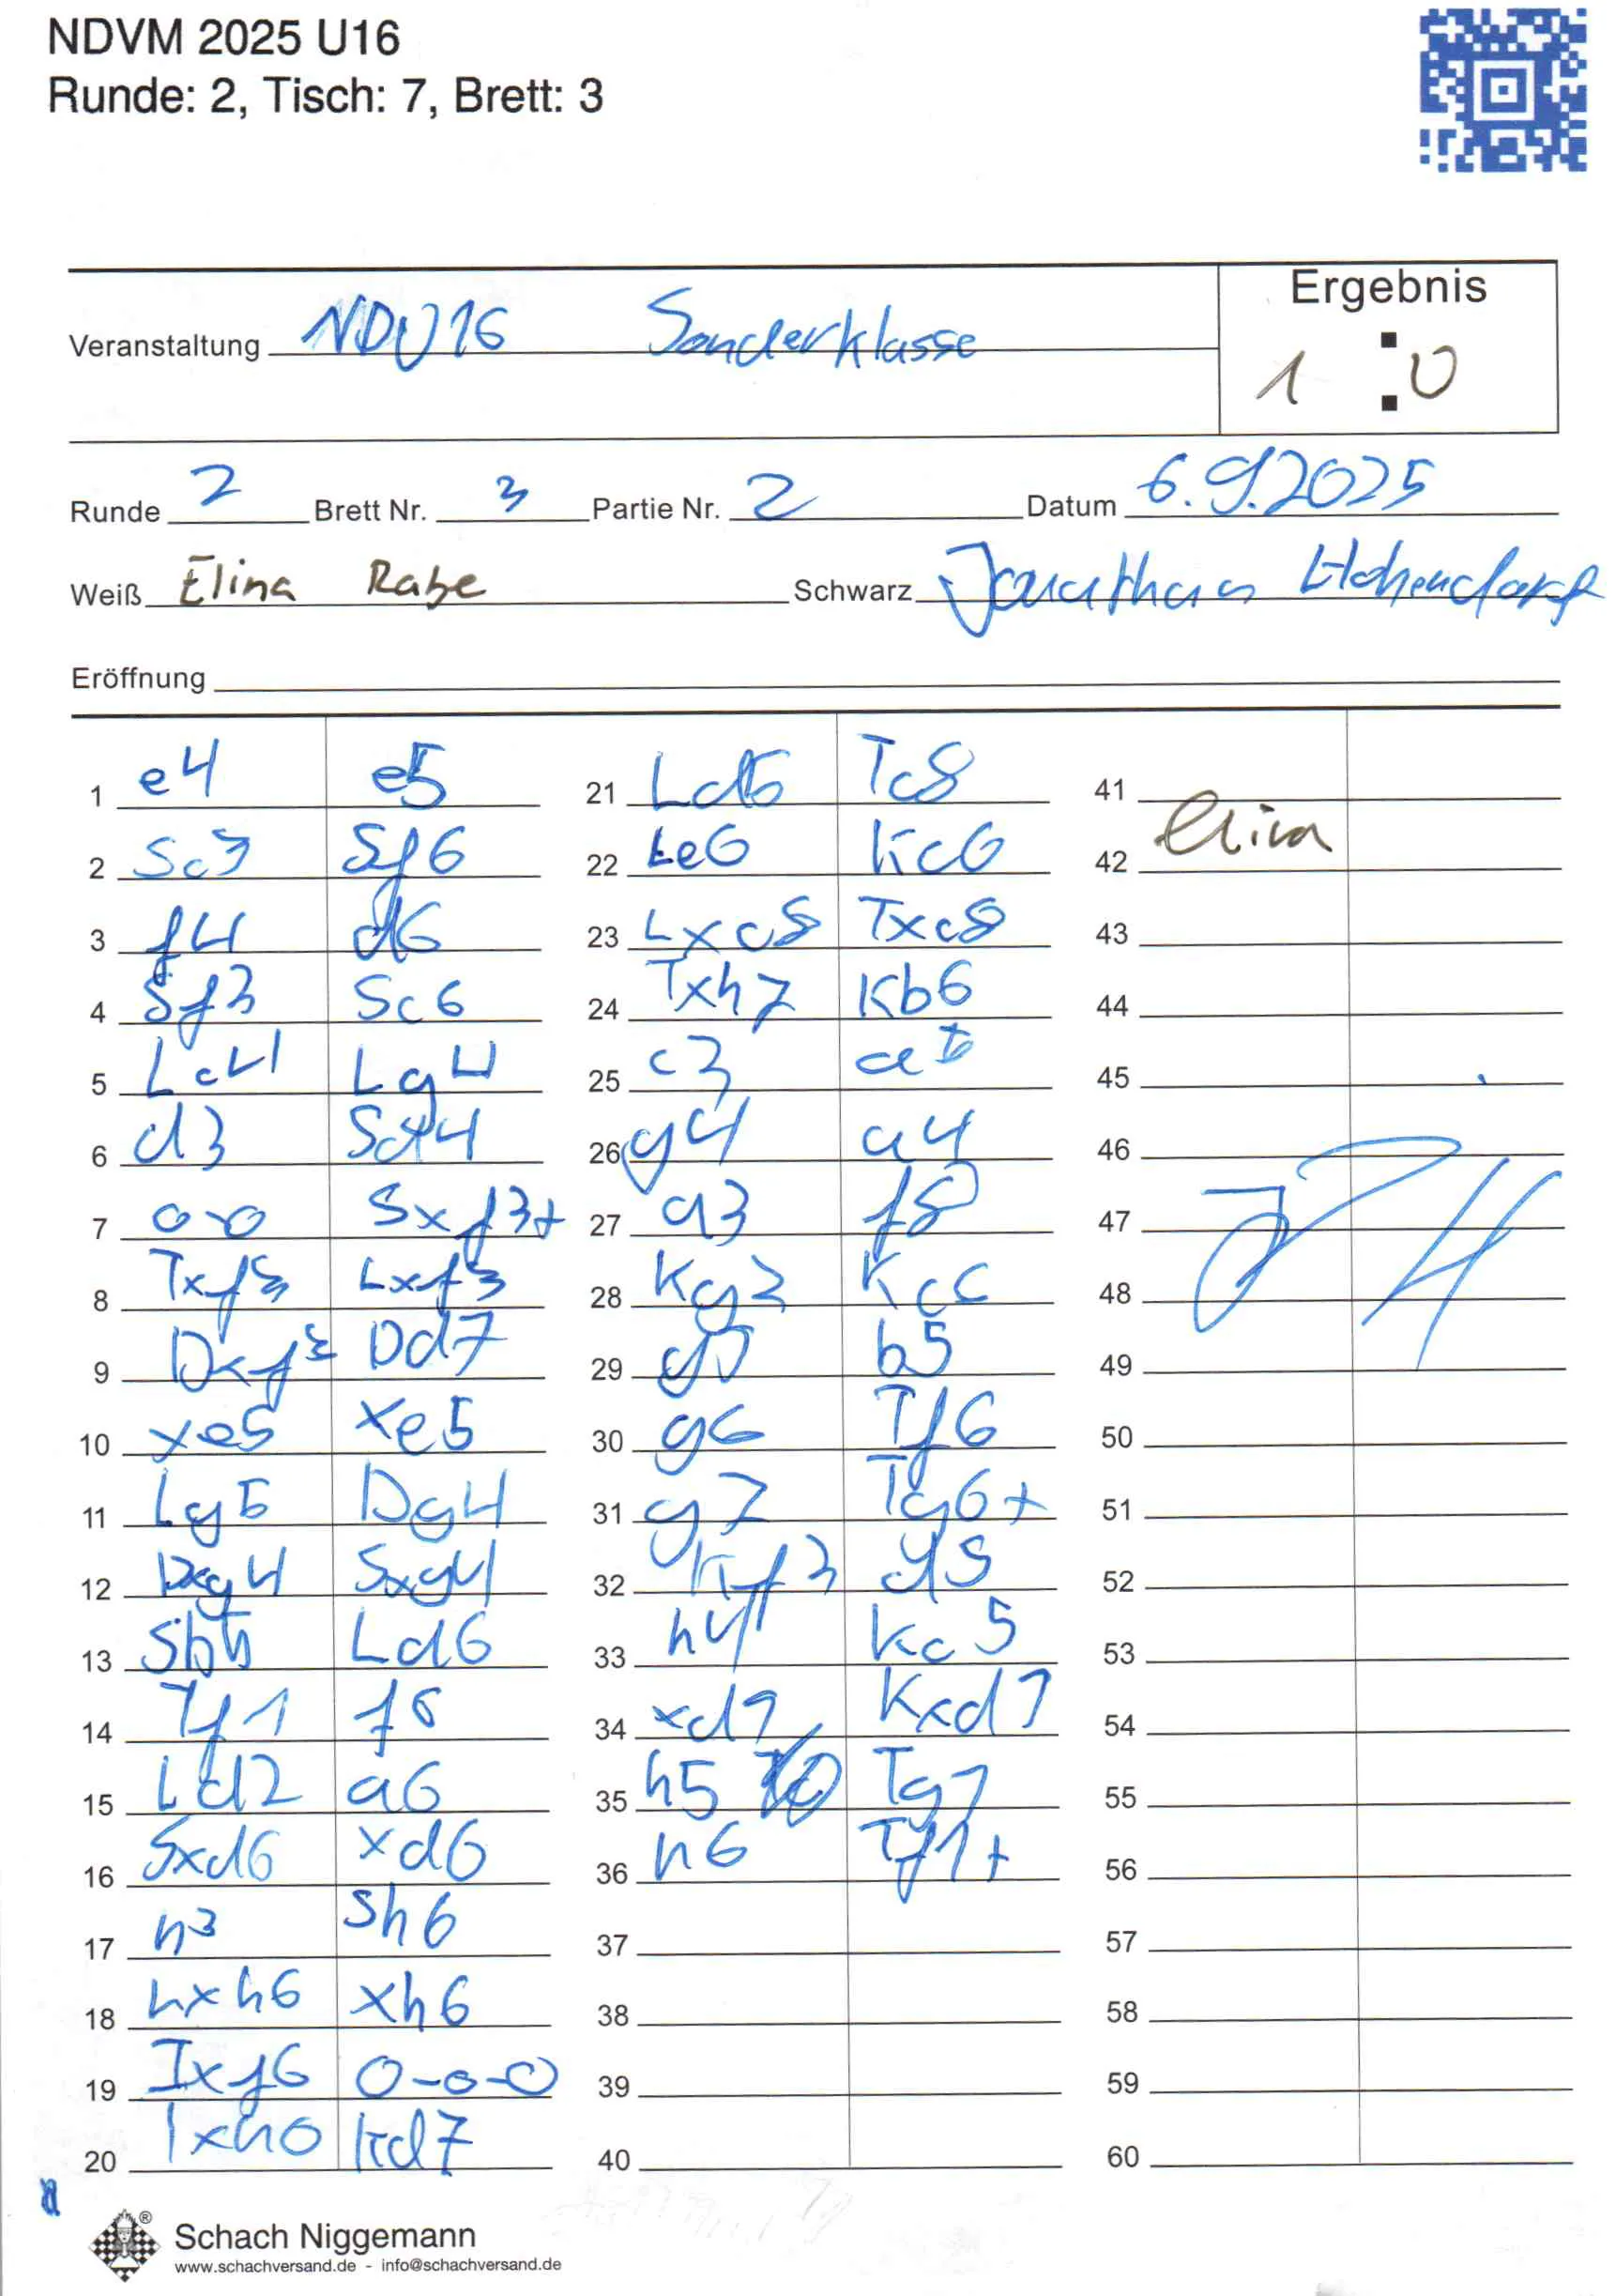 NDVM 2025 U16
Runde: 2, Tisch: 7, Brett: 3
Ergebnis
Veranstaltung NDU16 Sonderklasse
1 : 0
Runde 2 Brett Nr. 3 Partie Nr. 2 Datum 6.9.2025
Weiß Elina Rabe Schwarz Jonathan Hohendorf
Eröffnung
1 e4 e5
2 Sc3 Sf6
3 f4 d6
4 Sf3 Sc6
5 Lc4 Lg4
6 d3 Sd4
7 0-0 Sxf3+
8 Txf3 Lxf3
9 Dxf3 Dd7
10 xe5 xe5
11 Lg5 Dg4
12 Dxg4 Sxg4
13 Sb5 Ld6
14 Tf1 f6
15 Ld2 a6
16 Sxd6 xd6
17 h3 Sh6
18 Lxh6 xh6
19 Txf6 0-0-0
20 Txh6 Kd7
21 Ld5 Tc8
22 Le6 Kc6
23 Lxc8 Txc8
24 Txh7 Kb6
25 c3 a5
26 g4 a4
27 a3 f8
28 Kg2 Kc6
29 g5 b5
30 g6 Tf6
31 g7 Tg6+
32 Kf3 d5
33 h4 Kc5
34 xd7 Kxd7
35 h5 Tg7
36 h6 Tf1+
37
38
39
40
41
42 Elina
43
44
45
46
47 J H
48
49
50
51
52
53
54
55
56
57
58
59
60
Schach Niggemann
www.schachversand.de - info@schachversand.de